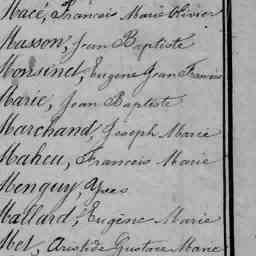 Macé, Francois Marie Olivier
Masson, Jean Baptiste
Monsinet, Eugene Jean Francis
Marie, Jean Baptiste
Marchand, Joseph Marie
Maheu, Francois Marie
Menguy, Yves
Mallard, Eugène Marie
Met, Aristide Gustave Marie